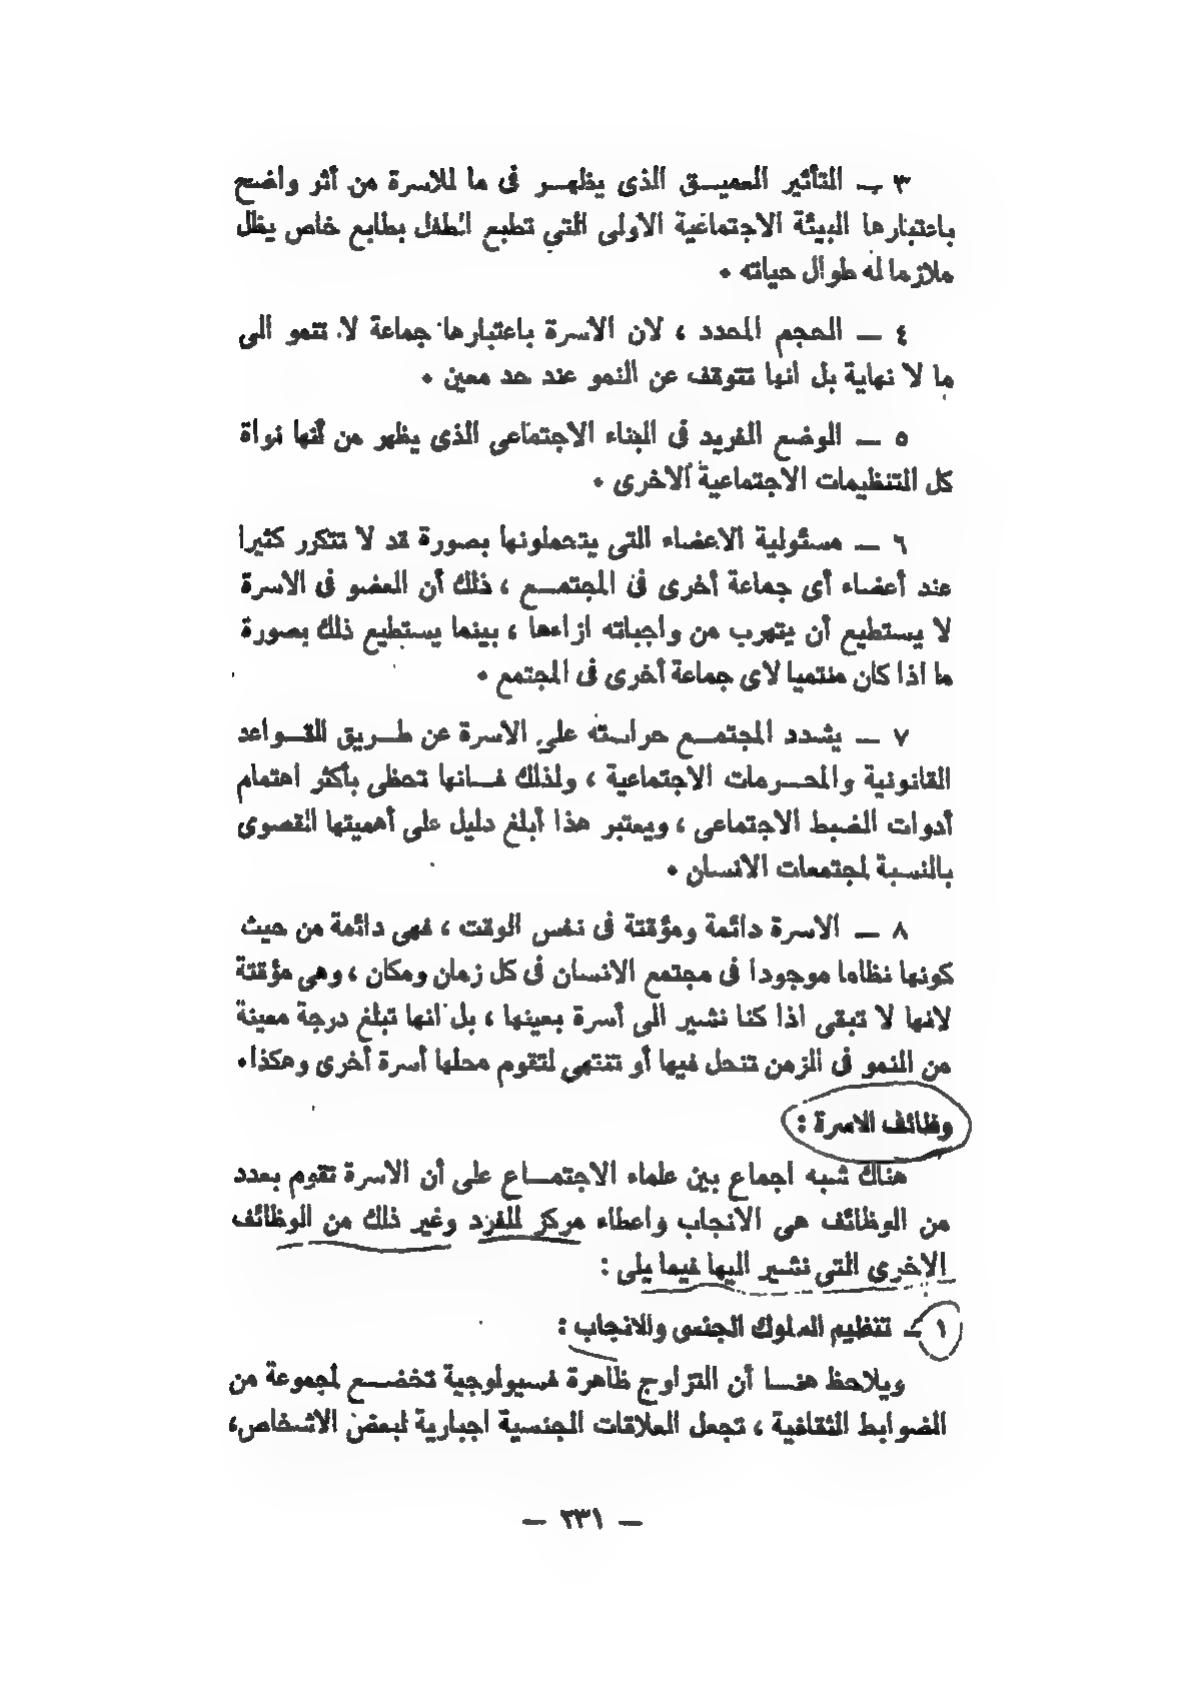 ٣ ــ التأثير العميــق الذى يظهــر فى ما للاسرة من أثر واضح
باعتبارها البيئة الاجتماعية الاولى التى تطبع الطفل بطابع خاص يظل
ملازما له طوال حياته ٠
٤ ــ الحجم المحدد ، لان الاسرة باعتبارها جماعة لا تنمو الى
ما لا نهاية بل انها تتوقف عن النمو عند حد معين ٠
٥ ــ الوضع الفريد فى البناء الاجتماعى الذى يظهر من أنها نواة
كل التنظيمات الاجتماعية الاخرى ٠
٦ ــ مسئولية الاعضاء التى يتحملونها بصورة قد لا تتكرر كثيرا
عند أعضاء أى جماعة أخرى فى المجتمــع ، ذلك أن العضو فى الاسرة
لا يستطيع أن يتهرب من واجباته ازاءها ، بينما يستطيع ذلك بصورة
ما اذا كان منتميا لاى جماعة أخرى فى المجتمع ٠
٧ ــ يشدد المجتمــع حراسته على الاسرة عن طــريق القــواعد
القانونية والمحــرمات الاجتماعية ، ولذلك فــانها تحظى بأكثر اهتمام
أدوات الضبط الاجتماعى ، ويعتبر هذا أبلغ دليل على أهميتها القصوى
بالنسبة لمجتمعات الانسان ٠
٨ ــ الاسرة دائمة ومؤقتة فى نفس الوقت ، فهى دائمة من حيث
كونها نظاما موجودا فى مجتمع الانسان فى كل زمان ومكان ، وهى مؤقتة
لانها لا تبقى اذا كنا نشير الى أسرة بعينها ، بل انها تبلغ درجة معينة
من النمو فى الزمن تنحل فيها أو تنتهى لتقوم محلها أسرة أخرى وهكذا٠
وظائف الاسرة :
هناك شبه اجماع بين علماء الاجتمــاع على أن الاسرة تقوم بعدد
من الوظائف هى الانجاب واعطاء مركز للفرد وغير ذلك من الوظائف
الاخرى التى نشير اليها فيما يلى :
١ ــ تنظيم السلوك الجنسى والانجاب :
ويلاحظ هنــا أن التزاوج ظاهرة فسيولوجية تخضــع لمجموعة من
الضوابط الثقافية ، تجعل العلاقات الجنسية اجبارية لبعض الاشخاص،
ــ ٢٣١ ــ